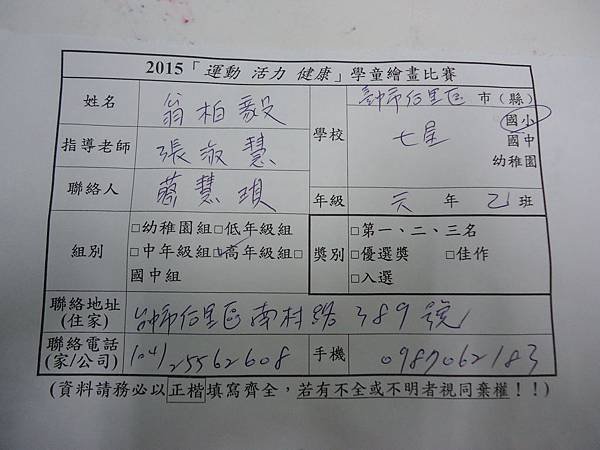 2015「運動 活力 健康」學童繪畫比賽
姓名 翁柏毅 學校 台中市后里區 市（縣）
七星 國小
國中
幼稚園
指導老師 張淑慧
聯絡人 蔡慧琪 年級 六 年 乙 班
組別 □幼稚園組□低年級組
□中年級組☑高年級組□
國中組
獎別 □第一、二、三名
□優選獎 □佳作
□入選
聯絡地址
(住家) 台中市后里區南村路389號
聯絡電話
(家/公司) (04)25562608 手機 0987062183
(資料請務必以正楷填寫齊全，若有不全或不明者視同棄權！！)